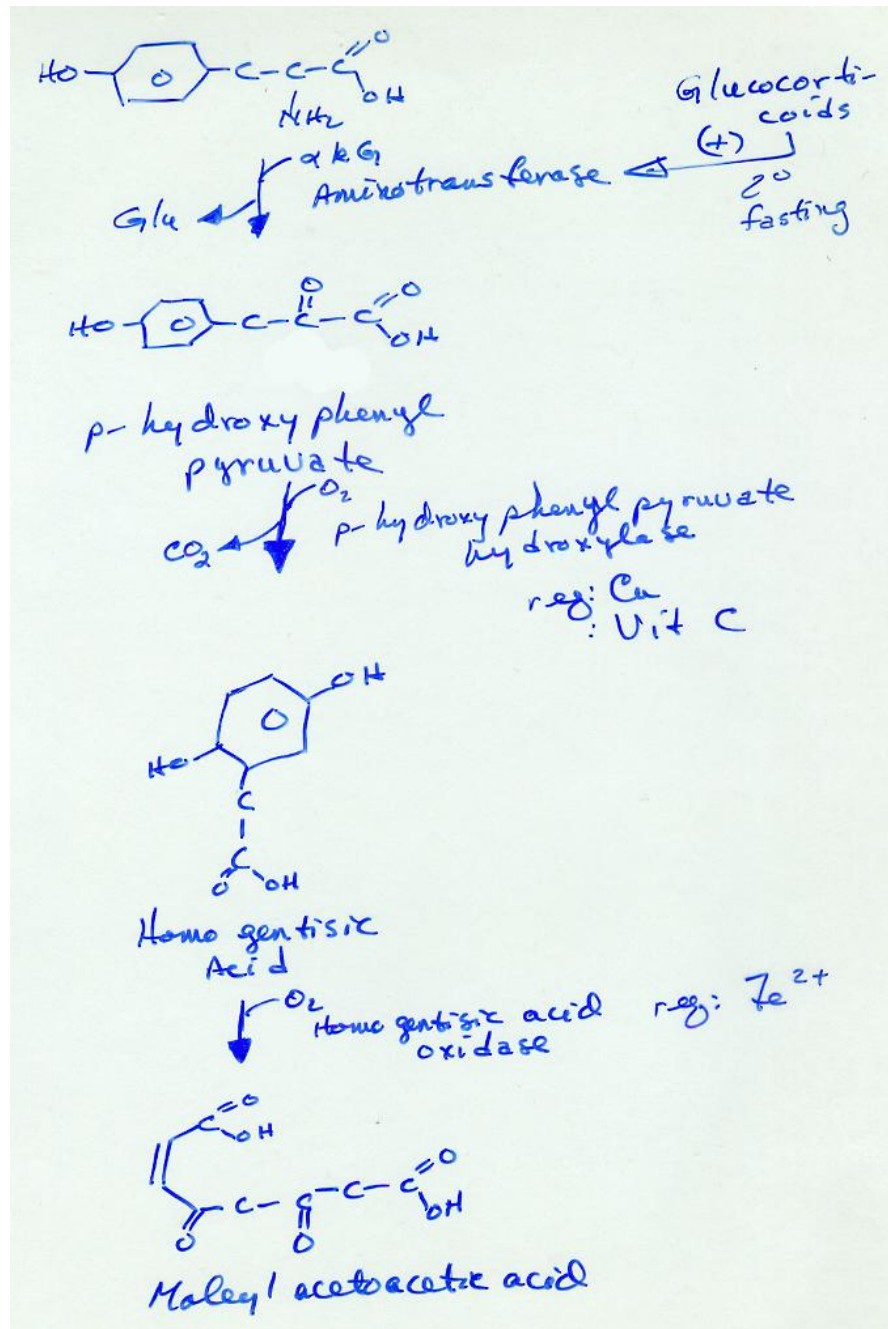 HO- O -C-C-C=O
OH
NH2
Glucocorti-
coids
(+)
2°
fasting
α kG
Aminotransferase
Glu
HO- O -C-C-C=O
O
OH
p-hydroxy phenyl
pyruvate
O2
p-hydroxy phenyl pyruvate
hydroxylase
CO2
req: Cu
: Vit C
OH
O
HO
C
C
O OH
Homo gentisic
Acid
O2
Homo gentisic acid
oxidase
req: Fe2+
C=O
OH
C-C-C-C=O
O
O
OH
Maleyl acetoacetic acid